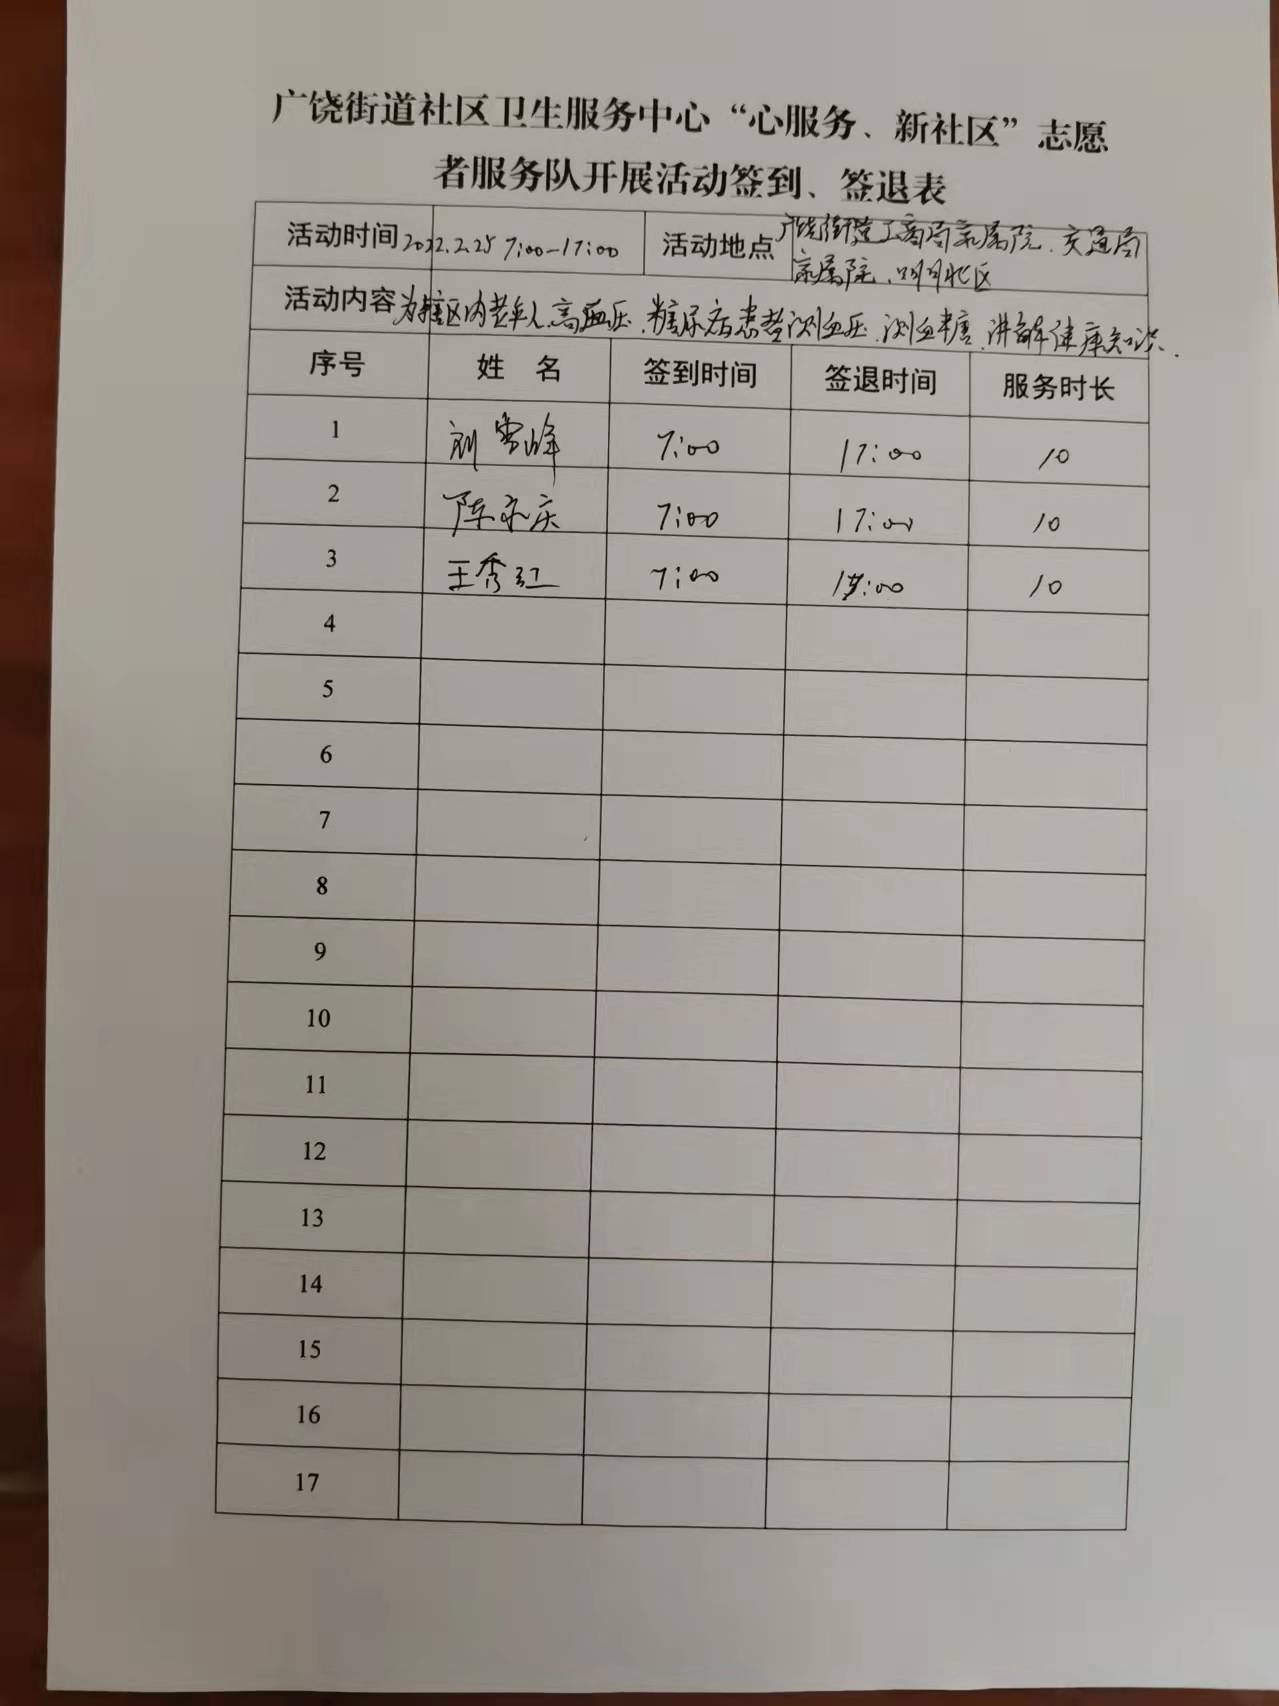 广饶街道社区卫生服务中心“心服务、新社区”志愿
者服务队开展活动签到、签退表
活动时间 2022.2.25 7:00-17:00 活动地点 广饶街道工商局家属院、交通局
家属院、明月北区
活动内容 为辖区内老年人、高血压、糖尿病患者测血压、测血糖、讲解健康知识.
序号 姓 名 签到时间 签退时间 服务时长
1 刘雪峰 7:00 17:00 10
2 陈永庆 7:00 17:00 10
3 王秀红 7:00 17:00 10
4
5
6
7
8
9
10
11
12
13
14
15
16
17